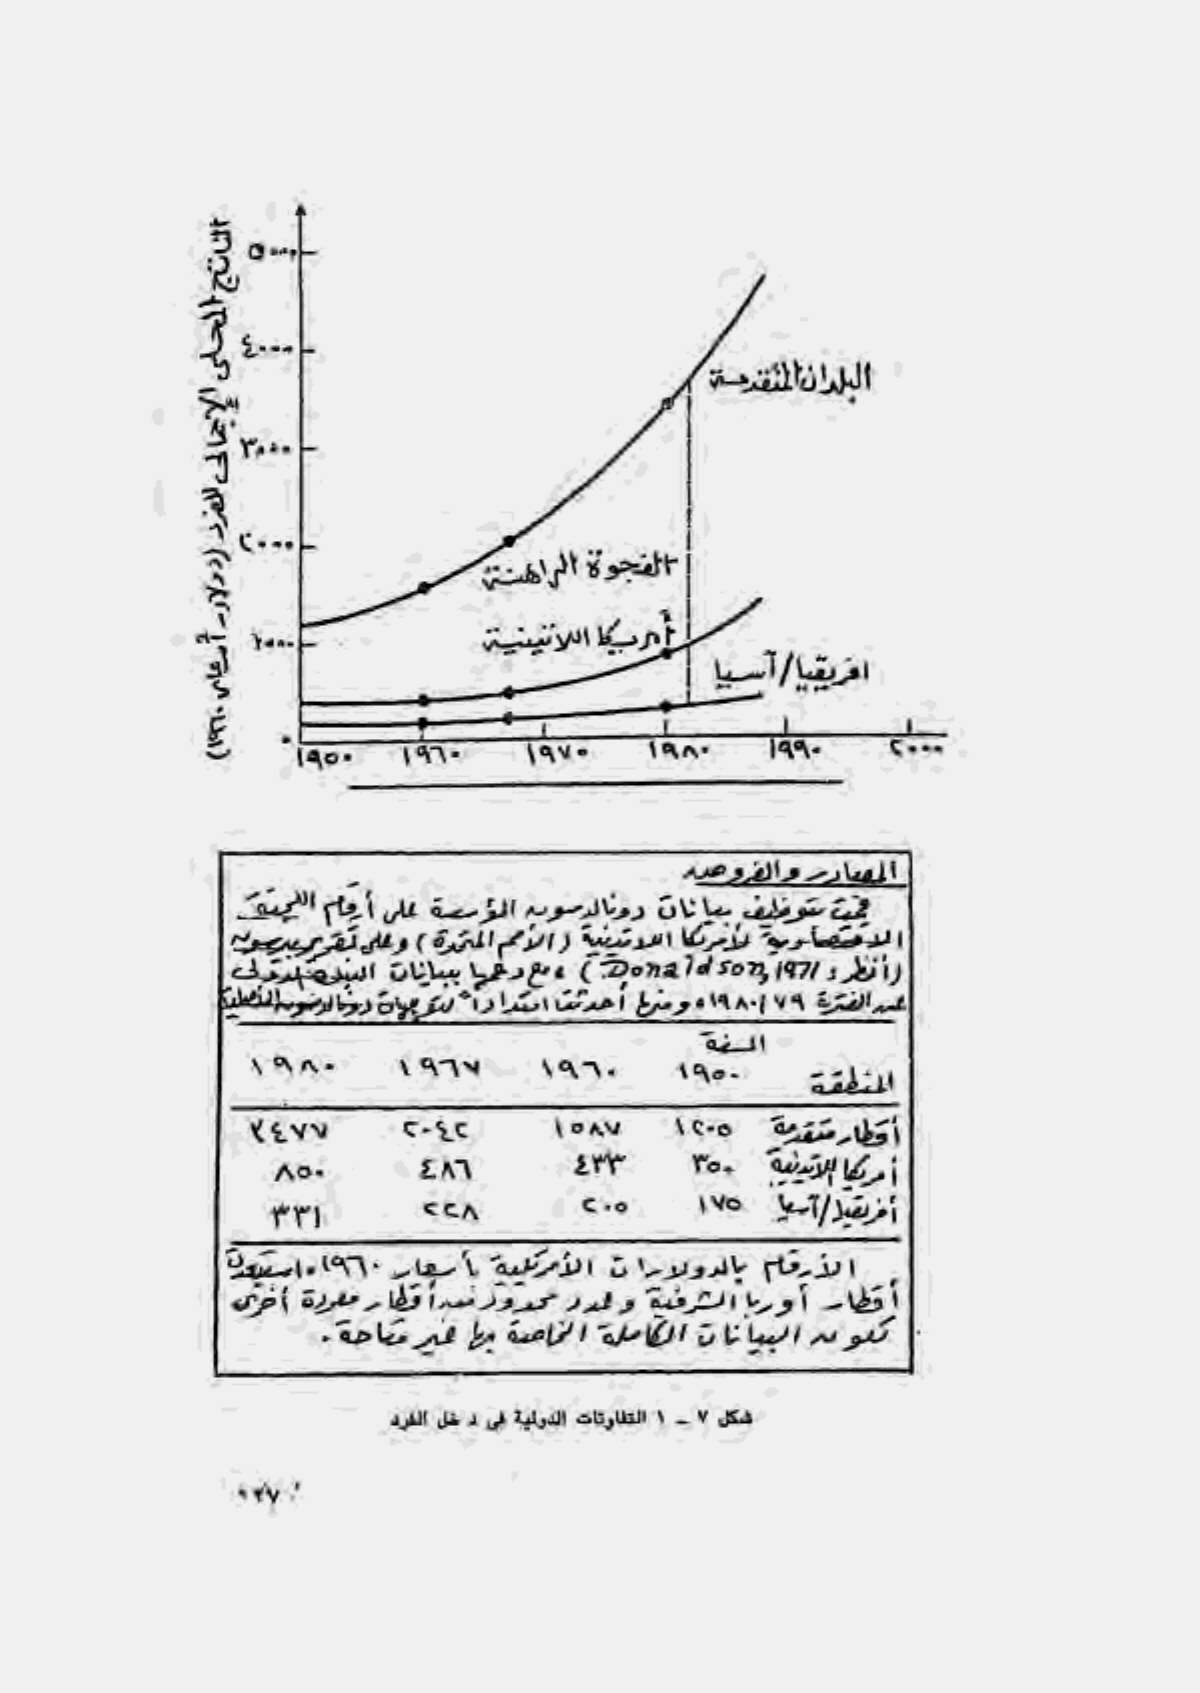 الناتج المحلى الإجمالى للفرد (دولار أمريكى ١٩٦٠)
٥٠٠٠
٤٠٠٠
٣٠٠٠
٢٠٠٠
١٠٠٠
٠
البلدان المتقدمة
الفجوة الراهنة
أمريكا اللاتينية
افريقيا/آسيا
١٩٥٠ ١٩٦٠ ١٩٧٠ ١٩٨٠ ١٩٩٠ ٢٠٠٠
المصادر والفروض
قمت بتوظيف بيانات دونالدسون المؤسسة على أرقام اللجنة
الاقتصادية لأمريكا اللاتينية (الأمم المتحدة) وعلى تقرير بيرسون
(أنظر: Donaldson, 1971)، مع دمجها ببيانات البنك الدولى
عن الفترة ١٩٨٠/٧٩، ومنها أحدثنا امتداداً
السنة
المنطقة ١٩٥٠ ١٩٦٠ ١٩٦٧ ١٩٨٠
أقطار متقدمة ١٢٠٥ ١٥٨٧ ٢٠٤٢ ٣٤٧٧
أمريكا اللاتينية ٣٥٠ ٤٣٣ ٤٨٦ ٨٥٠
أفريقيا/آسيا ١٧٥ ٢٠٥ ٢٢٨ ٣٣١
الأرقام بالدولارات الأمريكية بأسعار ١٩٦٠، استبعدت
أقطار أوربا الشرقية وعدد محدود من أقطار مفردة أخرى
كلون البيانات الكاملة الخاصة بها غير متاحة.
شكل ٧ – ١ التفاوتات الدولية فى دخل الفرد